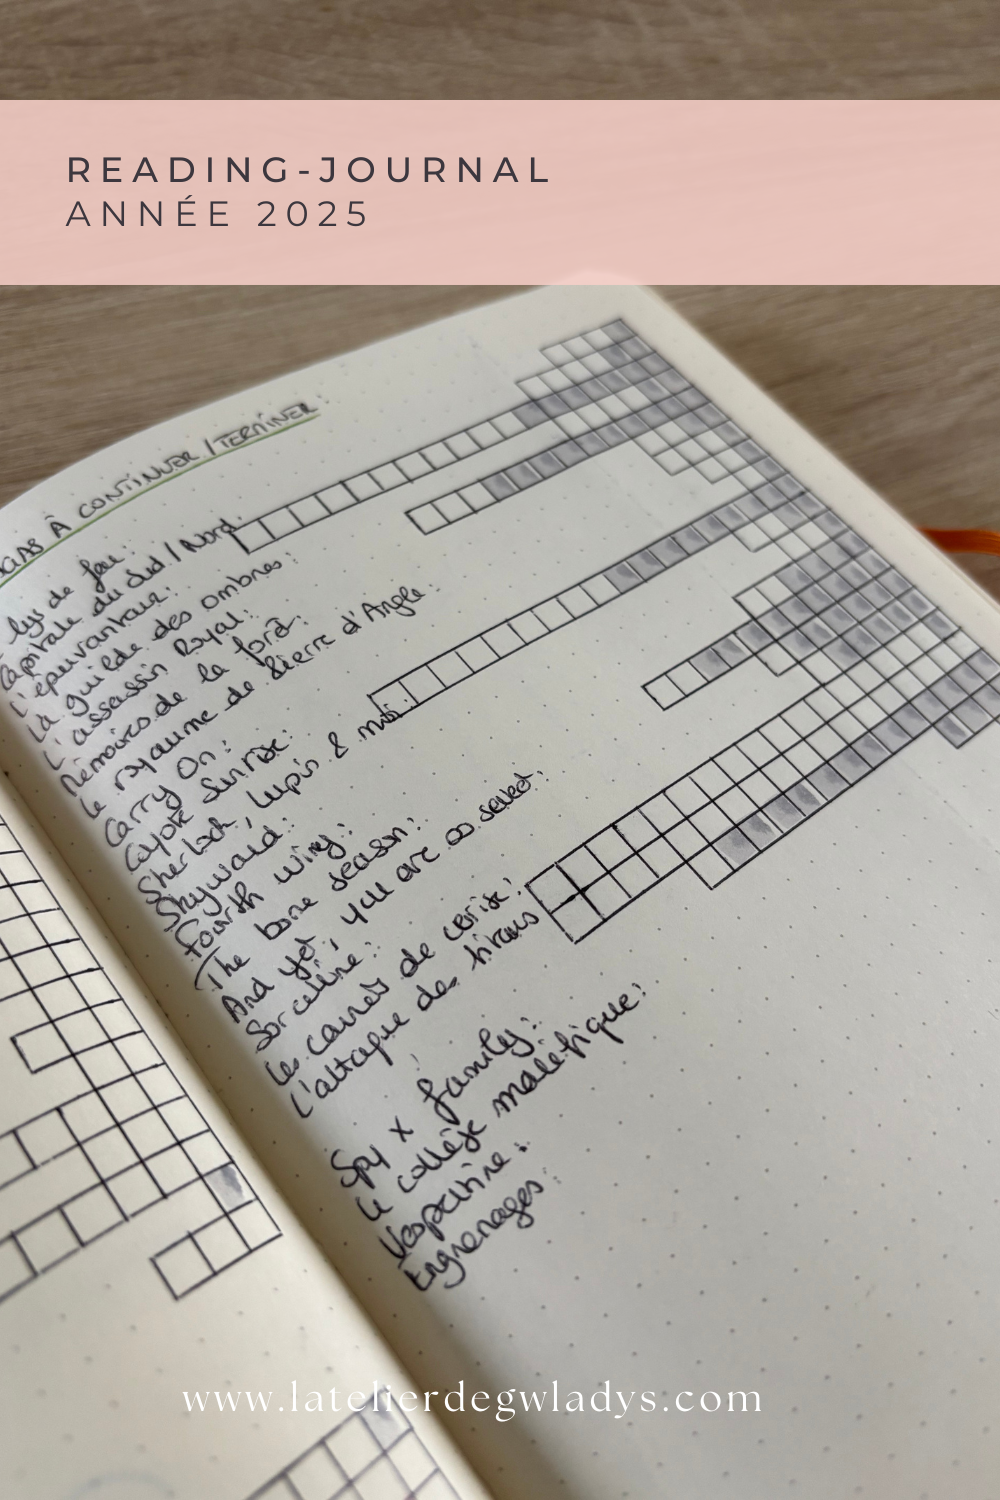 READING-JOURNAL
ANNÉE 2025
À CONTINUER / TERMINER :
lys de feu :
Capitale du Sud / Nord :
L'épouvanteur :
La guilde des ombres :
L'assassin Royal :
Mémoires de la forêt :
Le royaume de Pierre d'Angle :
Carry On :
Coyote Sunrise :
Sherlock, Lupin & moi :
Skyward :
Fourth wing :
The bone season :
And yet, you are so sweet :
Sorceline :
Les carnets de cerise :
L'attaque des titans
Spy x family :
Le collège maléfique :
Vespertine :
Engrenages :
www.latelierdegwladys.com